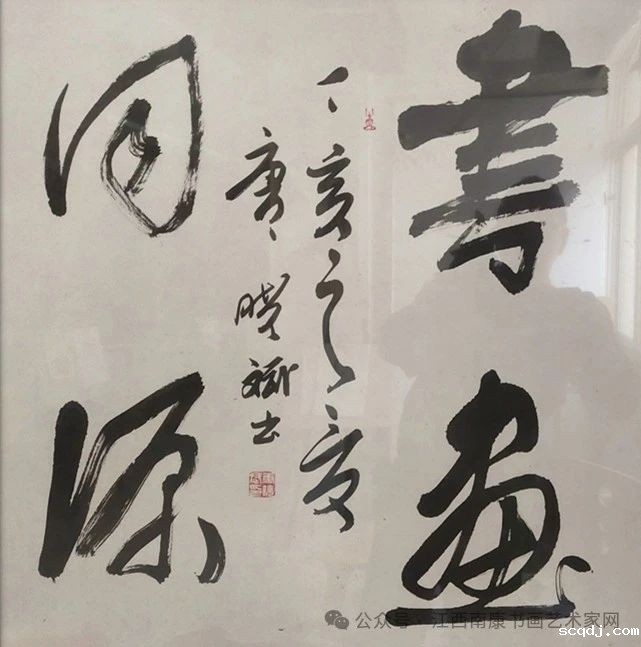 書畫
同源
丁亥之夏
唐曉斌书
公众号 · 江西南康书画艺术家网
scqdj.com